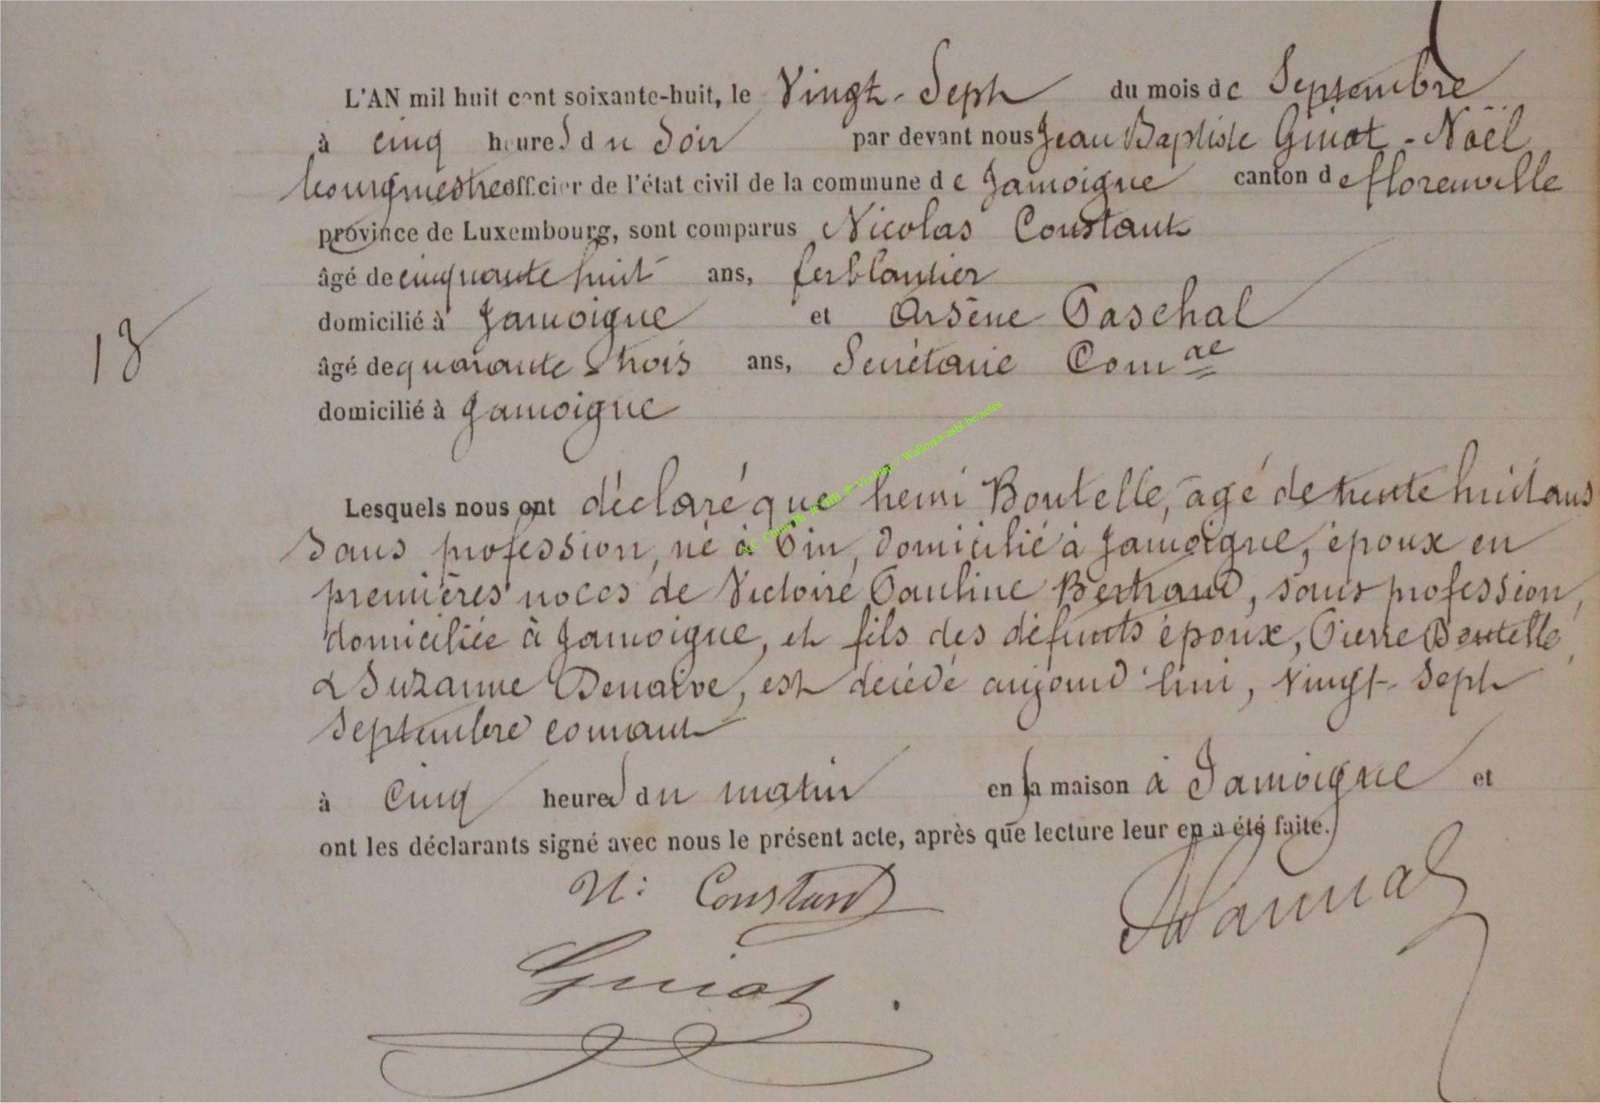 L'AN mil huit cent soixante-huit, le Vingt-Sept du mois de Septembre
à cinq heures du soir par devant nous Jean Baptiste Guiot-Noël
bourgmestre officier de l'état civil de la commune de Jamoigne canton de florenville
province de Luxembourg, sont comparus Nicolas Constant
âgé de cinquante huit ans, ferblantier
domicilié à Jamoigne et Arsène Paschal
13
âgé de quarante trois ans, Secrétaire Com ae
domicilié à Jamoigne
Lesquels nous ont déclaré que henri Boutelle, âgé de trente huit ans
sans profession, né à Pin, domicilié à Jamoigne, époux en
premières noces de Victoire Pauline Bertrand, sans profession,
domiciliée à Jamoigne, et fils des défunts époux, Pierre Boutelle
& Suzanne, est décédé aujourd'hui, vingt-sept
septembre courant
à cinq heures du matin en sa maison à Jamoigne et
ont les déclarants signé avec nous le présent acte, après que lecture leur en a été faite.
N: Constant
Guiot